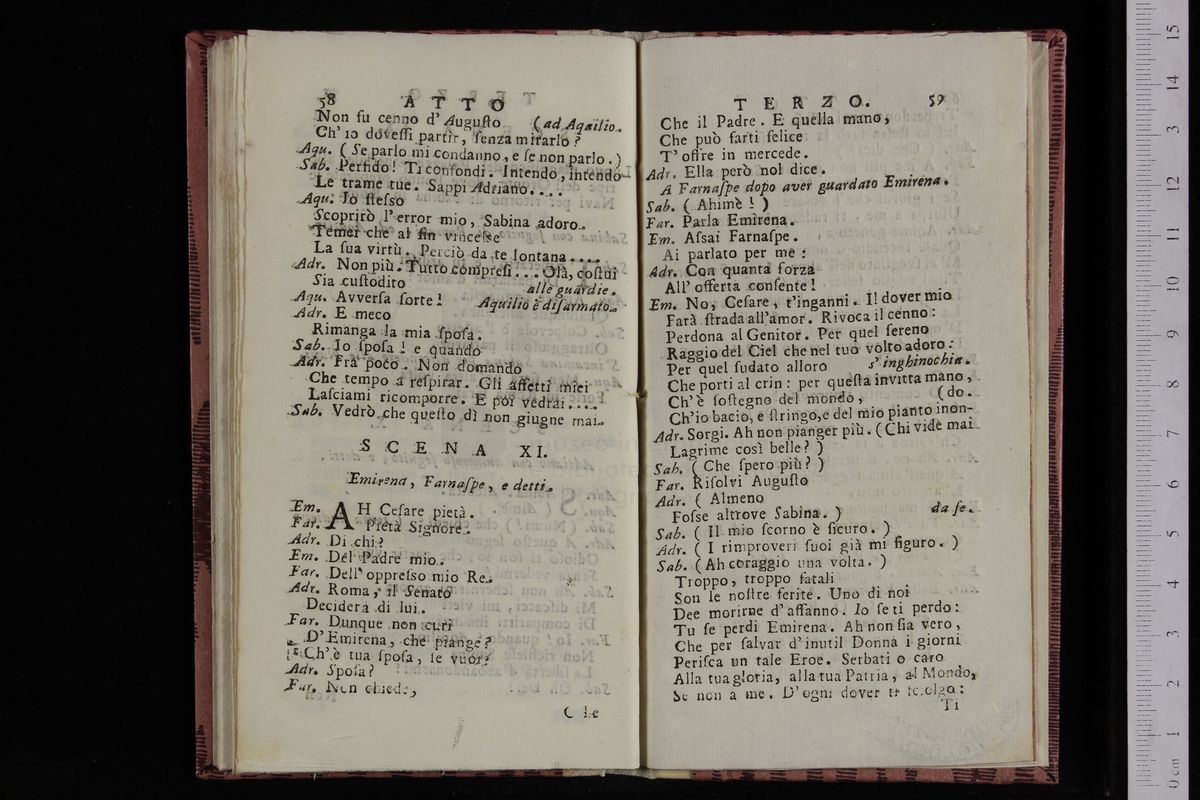 58 ATTO
Non fu cenno d'Auguſto (ad Aquilio.
Ch'io doveſſi partir, ſenza mirarlo?
Aqu. (Se parlo mi condanno, e ſe non parlo.)
Sab. Perfido! Ti confondi. Intendo, intendo
Le trame tue. Sappi Adriano....
Aqu. Io ſteſso
Scoprirò l'error mio, Sabina adoro.
Temei che al fin vinceſse
La ſua virtù. Perciò da te lontana....
Adr. Non più. Tutto compreſi... Olà, coſtui
Sia cuſtodito alle guardie.
Aqu. Avverſa ſorte! Aquilio è diſarmato.
Adr. E meco
Rimanga la mia ſpoſa.
Sab. Io ſpoſa! e quando
Adr. Fra poco. Non domando
Che tempo a reſpirar. Gli affetti miei
Laſciami ricomporre. E poi vedrai....
Sab. Vedrò che queſto dì non giugne mai.
SCENA XI.
Emirena, Farnaſpe, e detti.
Em. AH Ceſare pietà.
Far. Pietà Signore.
Adr. Di chi?
Em. Del Padre mio.
Far. Dell' oppreſso mio Re.
Adr. Roma, il Senato
Deciderà di lui.
Far. Dunque non curi
D'Emirena, che piange?
Ch'è tua ſpoſa, ſe vuoi?
Adr. Spoſa?
Far. Non chiede,
Che
TERZO. 59
Che il Padre. E quella mano,
Che può farti felice
T'offre in mercede.
Adr. Ella però nol dice.
A Farnaſpe dopo aver guardato Emirena.
Sab. (Ahimè!)
Far. Parla Emirena.
Em. Aſsai Farnaſpe.
Ai parlato per me:
Adr. Con quanta forza
All' offerta conſente!
Em. No, Ceſare, t'inganni. Il dover mio
Farà ſtrada all'amor. Rivoca il cenno:
Perdona al Genitor. Per quel ſereno
Raggio del Ciel che nel tuo volto adoro:
Per quel ſudato alloro s'inghinochia.
Che porti al crin: per queſta invitta mano,
Ch'è ſoſtegno del mondo, (do.
Ch'io bacio, e ſtringo, e del mio pianto inon-
Adr. Sorgi. Ah non pianger più. (Chi vide mai
Lagrime così belle?)
Sab. (Che ſpero più?)
Far. Riſolvi Auguſto
Adr. (Almeno
Foſse altrove Sabina.) da ſe.
Sab. (Il mio ſcorno è ſicuro.)
Adr. (I rimproveri ſuoi già mi figuro.)
Sab. (Ah coraggio una volta.)
Troppo, troppo fatali
Son le noſtre ferite. Uno di noi
Dee morirne d'affanno. Io ſe ti perdo:
Tu ſe perdi Emirena. Ah non ſia vero,
Che per ſalvar d'inutil Donna i giorni
Periſca un tale Eroe. Serbati o caro
Alla tua gloria, alla tua Patria, al Mondo,
Se non a me. D'ogni dover ti ſciolgo:
Ti
0 cm 1 2 3 4 5 6 7 8 9 10 11 12 13 14 15